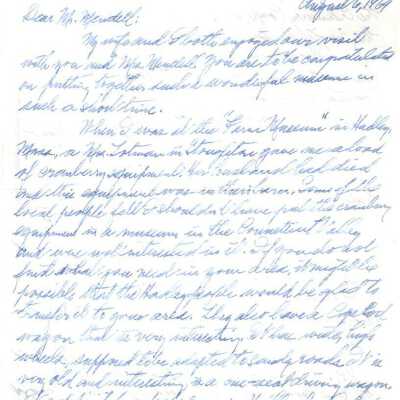 August 6, 1969
Dear Mr. Mendell:
My wife and I both enjoyed our visit
with you and Mrs. Mendell. You are to be congratulated
on putting together such a wonderful museum in
such a short time.
When I was at the "Farm Museum" in Hadley,
Mass, a Mrs. in Stoughton gave me a load
of cranberry equipment; her husband had died
and the equipment was in their barn. Some of the
local people felt I shouldn't have put the cranberry
equipment in a museum in the Connecticut Valley
and were not interested in it. If you do not
find what you need in your area, it might be
possible that the Hadley people would be glad to
transfer it to your area. They also have a Cape Cod
wagon that is very interesting, wide, high
wheels, supposed to be adapted to sandy roads. It is
very old and interesting as a one-seat driving wagon.